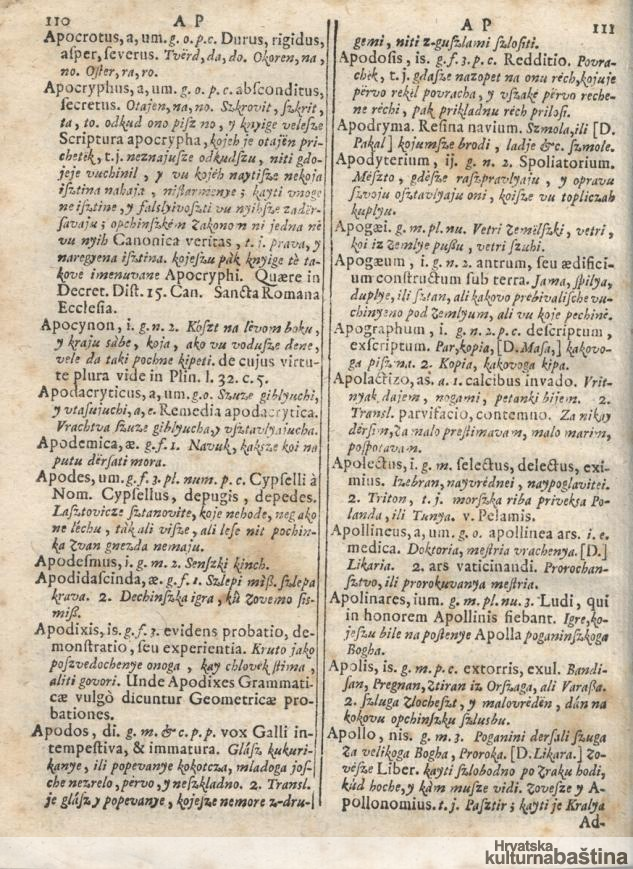 110
A P
Apocrotus, a, um. g. o. p. c. Durus, rigidus,
aſper, ſeverus. Tvërd, da, do. Okoren, na,
no. Oſter, ra, ro.
Apocryphus, a, um. g. o. p. c. abſconditus,
ſecretus. Otajen, na, no. Szkrovit, ſzkrit,
ta, to. odkud ono piſzno, y knyige veleſze
Scriptura apocrypha, kojeh je otajën pri-
chetek, t. j. neznajuſze odkudſzu, niti gdo-
jeje vuchinil, y vu kojëh naytiſze nekoja
iſztina nahaja, niſtarmenye; kayti vnoge
ne iſztine, y falſlyivoſzti vu nyihſze zadër-
ſavaju; opchinſzkëm Zakonom ni jedna në
vu nyih Canonica veritas, t. j. prava, y
naregyena iſztina. kojeſzu pàk knyige tè ta-
kove imenuvane Apocryphi. Quære in
Decret. Diſt. 15. Can. Sancta Romana
Eccleſia.
Apocynon, i. g. n. 2. Koſzt na lëvom boku,
y kraju ſàbe, koja, ako vu voduſze dene,
vele da taki pochne kipeti. de cujus virtu-
te plura vide in Plin. l. 32. c. 5.
Apodacryticus, a, um. g. o. Szuze giblyuchi,
y vtaſujuchi, a, e. Remedia apodacrytica.
Vrachtva ſzuze giblyucha, y vſztavlyajucha.
Apodemica, æ. g. f. 1. Navuk, kakſze koi na
putu dërſati mora.
Apodes, um. g. f. 3. pl. num. p. c. Cypſelli à
Nom. Cypſellus, depugis, depedes.
Laſztovicze ſztanovite, koje nehode, neg ako
ne lëchu, tàk ali viſze, ali leſe nit pochin-
ka Zvan gnezda nemaju.
Apodeſmus, i. g. m. 2. Senſzki kinch.
Apodidaſcinda, æ. g. f. 1. Szlepi miſs. ſzlepa
krava. 2. Dechinſzka igra, kù Zovemo ſis-
miſs.
Apodixis, is. g. f. 3. evidens probatio, de-
monſtratio, ſeu experientia. Kruto jako
poſzvedochenye onoga, kay chlovëk ſtima,
aliti govori. Unde Apodixes Grammati-
cæ vulgò dicuntur Geometricæ pro-
bationes.
Apodos, di. g. m. & c. p. p. vox Galli in-
tempeſtiva, & immatura. Glàſz kukuri-
kanye, ili popevanye kokotcza, mladoga joſ-
che nezrelo, përvo, y neſzkladno. 2. Tranſl.
je glàſz, y popevanye, kojeſze nemore z-dru-
A P
111
gemi, niti z-guſzlami ſzloſiti.
Apodoſis, is. g. f. 3. p. c. Redditio. Povra-
chëk, t. j. gdaſze nazopet na onu rëch, kojuje
përvo rekël povracha, y vſzakë përvo reche-
ne rëchi, pak prikladnu rëch priloſi.
Apodryma. Reſina navium. Szmola, ili [D.
Pakal] kojumſze brodi, ladje &c. ſzmole.
Apodyterium, ij. g. n. 2. Spoliatorium.
Mëſzto, gdëſze raſzpravlyaju, y opravu
ſzvoju oſztavlyaju oni, koiſze vu topliczah
kuplyu.
Apogæi. g. m. pl. nu. Vetri Zemëlſzki, vetri,
koi iz Zemlye puſſu, vetri ſzuhi.
Apogæum, i. g. n. 2. antrum, ſeu ædifici-
um conſtructum ſub terra. Jama, ſpilya,
duplye, ili ſztan, ali kakovo prebivaliſche vu-
chinyeno pod Zemlyum, ali vu koje pechinë.
Apographum, i. g. n. 2. p. c. deſcriptum,
exſcriptum. Par, kopia, [D. Maſa,] kakovo-
ga piſzna. 2. Kopia, kakovoga kipa.
Apolactizo, as. a. 1. calcibus invado. Vrit-
nyak dajem, nogami, petanki bijem. 2.
Tranſl. parvifacio, contemno. Za nikay
dërſim, Za malo preſtimavam, malo marim,
poſpotavam.
Apolectus, i. g. m. ſelectus, delectus, exi-
mius. Izebran, nayvrédnei, naypoglavitei.
2. Triton, t. j. morſzka riba priveksa Po-
landa, ili Tunya. v. Pelamis.
Apollineus, a, um. g. o. apollinea ars. i. e.
medica. Doktoria, meſtria vrachenya. [D.]
Likaria. 2. ars vaticinandi. Prorochan-
ſztvo, ili prorokuvanya meſtria.
Apolinares, ium. g. m. pl. nu. 3. Ludi, qui
in honorem Apollinis fiebant. Igre, ko-
jeſzu bile na poſtenye Apolla poganinſzkoga
Bogha.
Apolis, is. g. m. p. c. extorris, exul. Bandi-
ſan, Pregnan, Ztiran iz Orſzaga, ali Varaſſa.
2. ſzluga Zlocheſzt, y malovrëdën, dàn na
kokovu opchinſzku ſzlusbu.
Apollo, nis. g. m. 3. Poganini derſali ſzuga
Za velikoga Bogha, Proroka. [D. Likara.] Zo-
vëſze Liber. kayti ſzlobodno po Zraku hodi,
kùd hoche, y kàm muſze vidi. Zoveſze y A-
pollonomius. t. j. Paſztir; kayti je Kralya
Ad-
Hrvatska
kulturnabaština